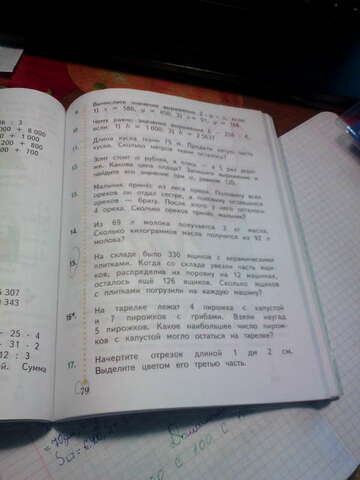 Вычислите значение выражения
Чему равно значение выражения
если: 1) k = 1000; 2) k =
Длина куска ткани 75 м. Продали пятую часть
куска. Сколько метров ткани осталось?
12. Зонт стоит n рублей, а плащ — в 5 раз доро-
же. Какова цена плаща? Запишите выражение и
найдите его значение при n, равном
13. Мальчик принёс из леса орехи. Половину всех
орехов он отдал сестре, а половину оставшихся
орехов — брату. После этого у него осталось
4 ореха. Сколько орехов принёс мальчик?
14. Из 69 л молока получается 3 кг масла.
Сколько килограммов масла получится из 92 л
молока?
15. На складе было 330 ящиков с керамическими
плитками. Когда со склада увезли часть ящи-
ков, распределив их поровну на 12 машинах,
осталось ещё 126 ящиков. Сколько ящиков
с плитками погрузили на каждую машину?
16*. На тарелке лежат 4 пирожка с капустой
и 7 пирожков с грибами. Взяли наугад
5 пирожков. Какое наибольшее число пирож-
ков с капустой могло остаться на тарелке?
17. Начертите отрезок длиной 1 дм 2 см.
Выделите цветом его третью часть.
79
: 3
000 + 8 000
0 + 1 000
200 + 800
00 + 700
307
343
- 25 - 4
- 31 - 2
12 : 3
ей. Сумма